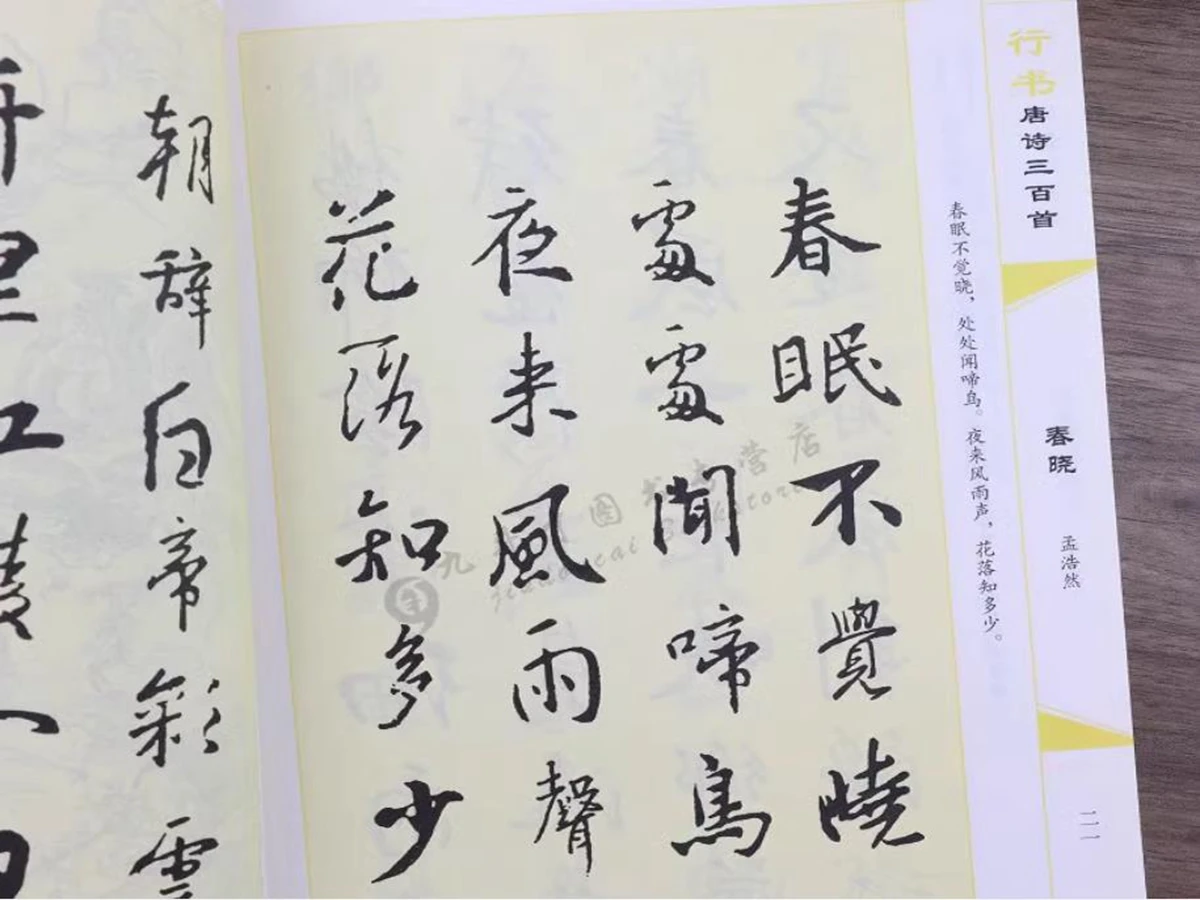 行书唐诗三百首
春晓
孟浩然
二一
春眠不觉晓，处处闻啼鸟。夜来风雨声，花落知多少。
春眠不覺曉
處處聞啼鳥
夜来風雨聲
花落知多少
朝辭白帝彩雲
图书专营店
Bookstore